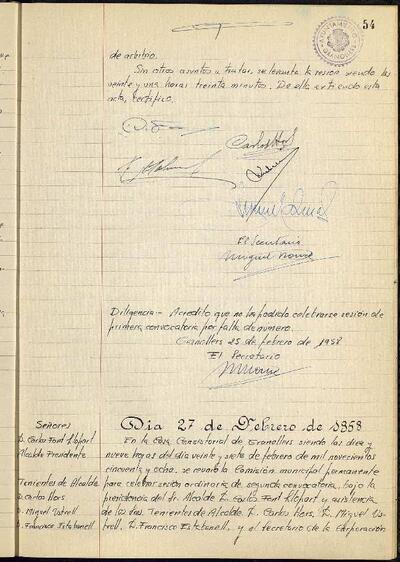 54
AYUNTAMIENTO
GRANOLLERS
de arbitrio.
Sin otros asuntos a tratar, se levanta la sesión siendo las
veinte y una horas treinta minutos. De ella extiendo esta
acta, certifico.
Carlos
El Secretario
Miguel
Diligencia.- Acredito que no ha podido celebrarse sesión de
primera convocatoria por falta de número.
Granollers 25 de febrero de 1958
El Secretario
Señores
D. Carlos Font Llopart
Alcalde Presidente
Tenientes de Alcalde
D. Carlos Hors
D. Miguel
D. Francisco Estabanell
Dia 27 de Febrero de 1958
En la Casa Consistorial de Granollers siendo las diez y
nueve horas del dia veinte y siete de febrero de mil novecientos
cincuenta y ocho, se reunió la Comisión municipal permanente
para celebrar sesión ordinaria de segunda convocatoria, bajo la
presidencia del Sr. Alcalde D. Carlos Font Llopart y asistencia
de los Tenientes de Alcalde D. Carlos Hors, D. Miguel
D. Francisco Estabanell, y el secretario de la Corporación